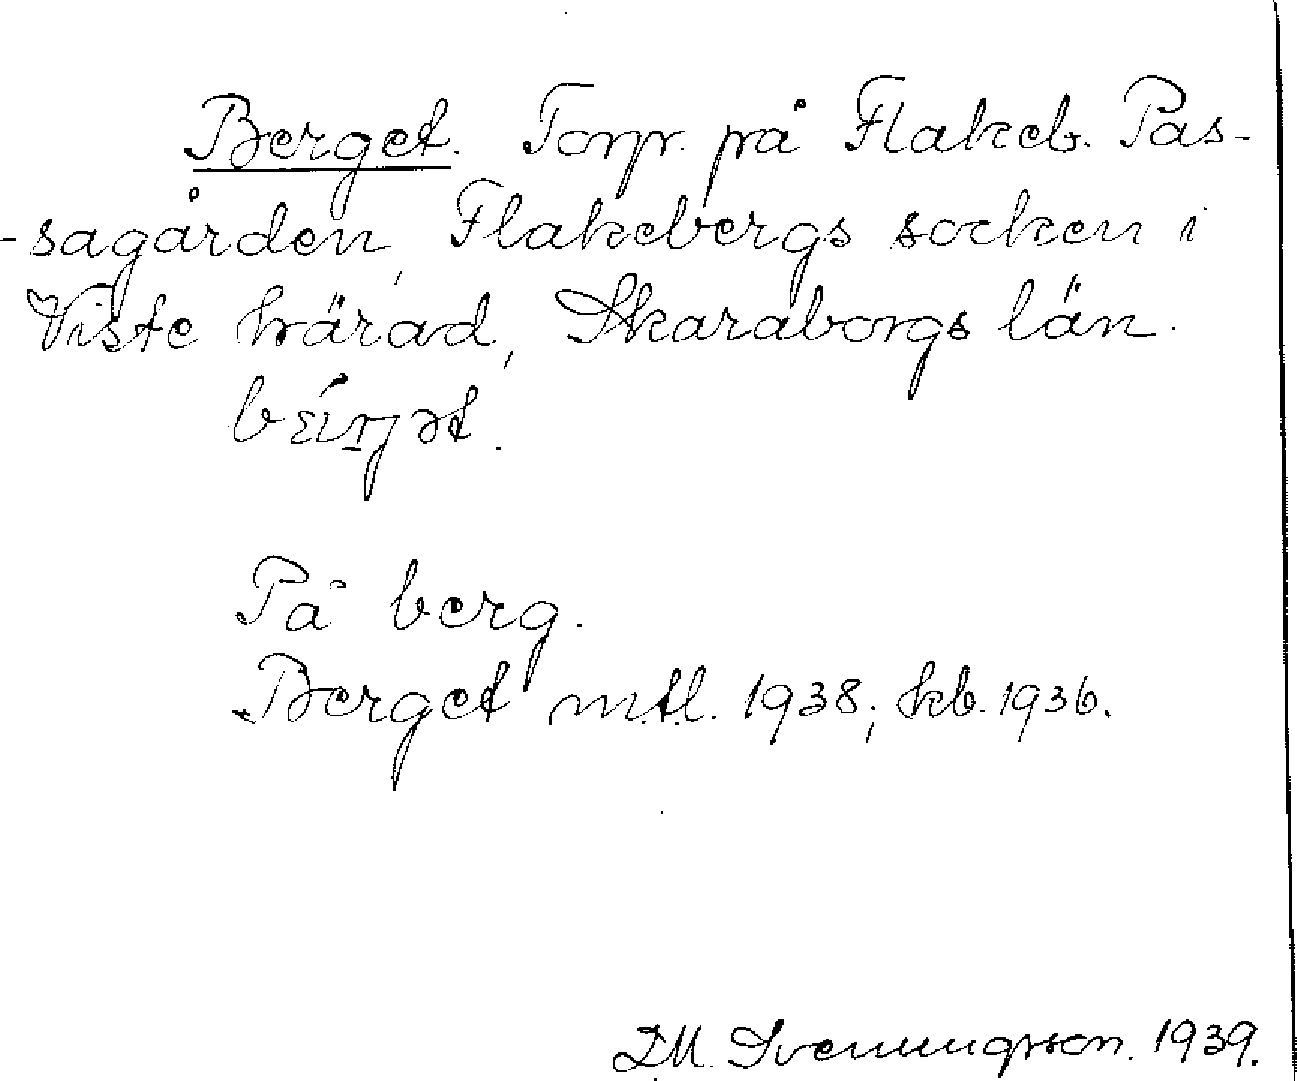 Berget. Torp. på Flakeb. Pas-
-sagården, Flakebergs socken i
Viste härad, Skaraborgs län.
På berg.
Berget mtl. 1938; kb. 1936.
D.M. Svenungsson. 1939.